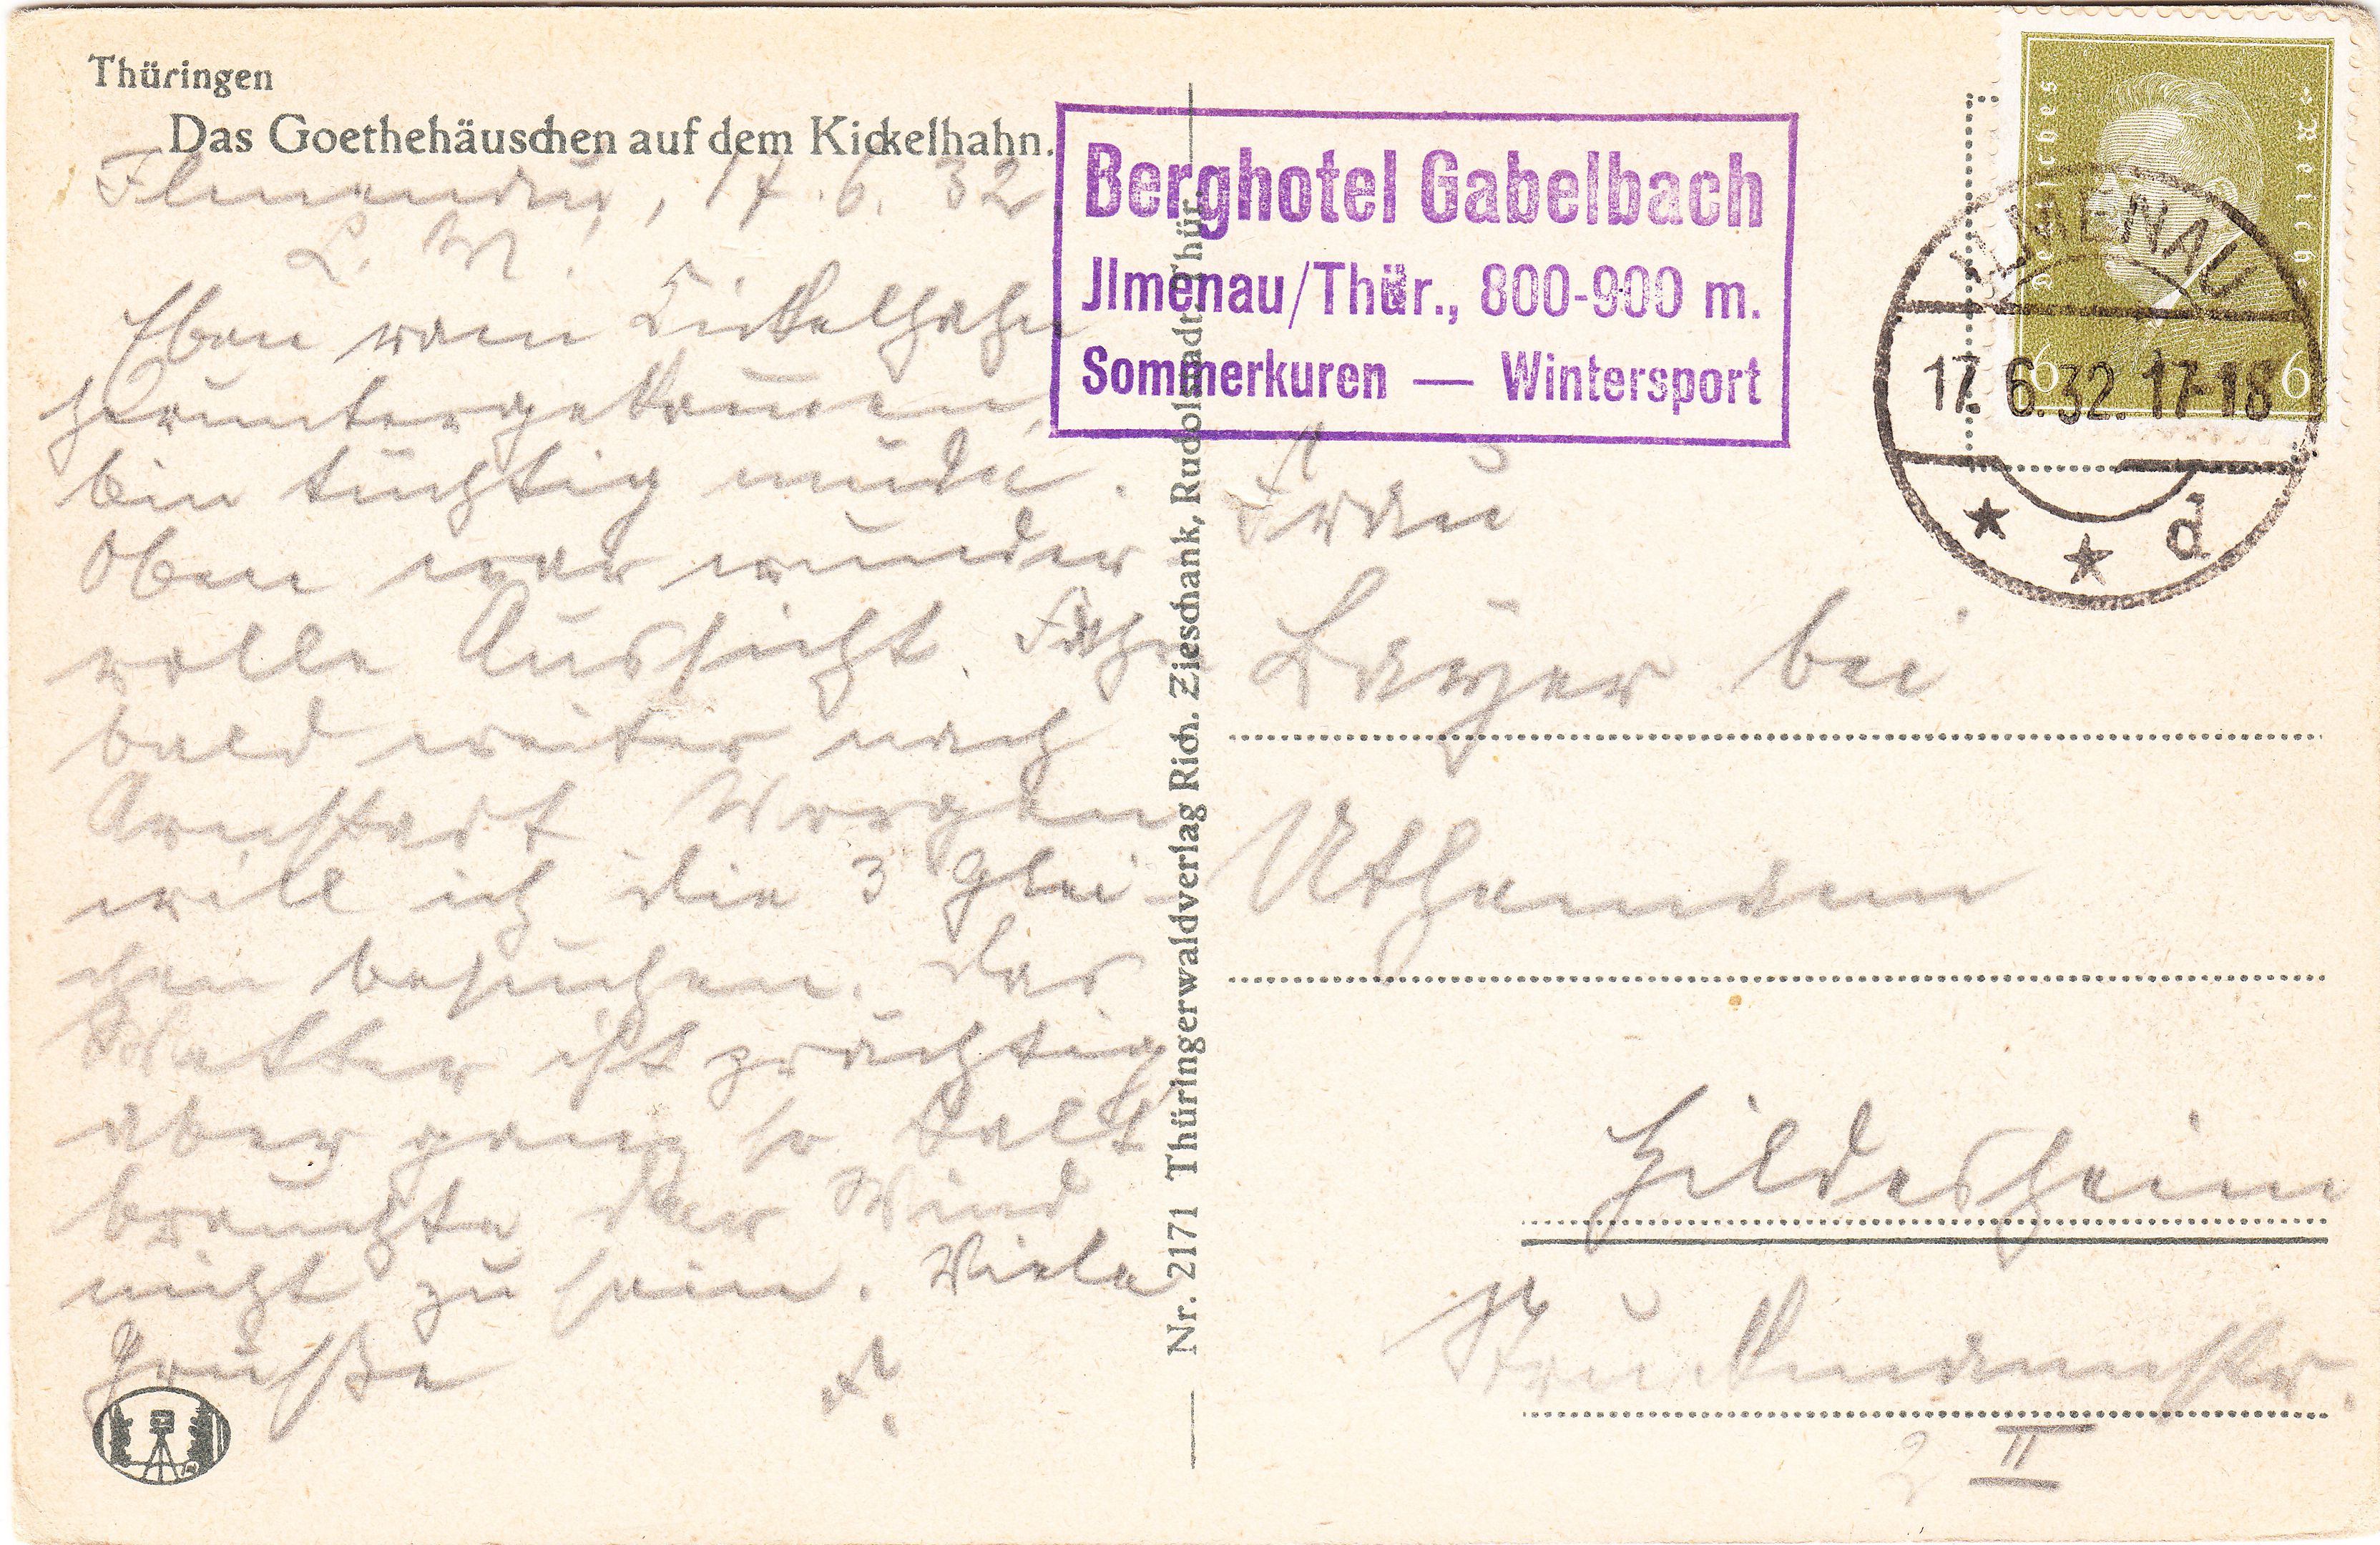 Thüringen
Das Goethehäuschen auf dem Kickelhahn.
Ilmenau, 17.6.32
L. M.
Eben vom Kickelhahn
heruntergekommen,
bin tüchtig müde.
Oben war wunder
volle Aussicht. Fahre
bald weiter nach
Arnstadt Morgen
will ich die 3 Glei-
chen besuchen. Das
Wetter ist prächtig
aber ganz so kalt
brauchte der Wind
nicht zu sein. Viele
Grüße
Nr. 2171 Thüringerwaldverlag Rich. Zieschank, Rudolstadt. Thür.
Berghotel Gabelbach
Jlmenau/Thür., 800-900 m.
Sommerkuren — Wintersport
Deutsches Reich
6 6
ILMENAU
17. 6. 32. 17-18
d
Frau
bei
Hildesheim
2 II